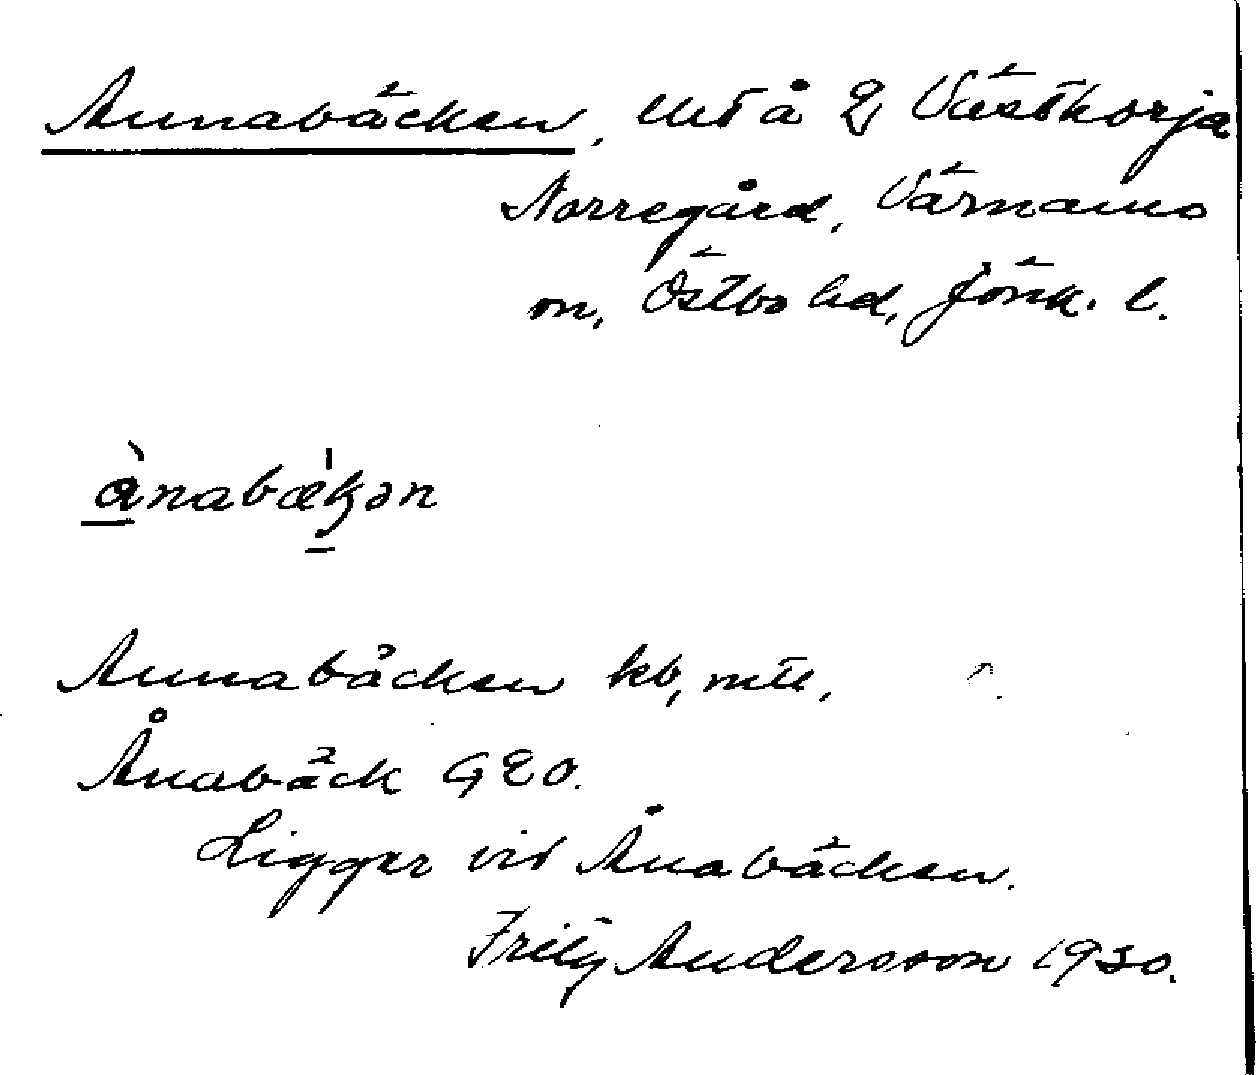 Annabäcken, utd å 2 Västhorja
Norregård, Värnamo
sn, Östbo hd, Jönk. l.
ànabæ̀kən
Annabäcken kb, mtl,
Ånabäck GEO.
Ligger vid Ånabäcken.
Fritz Andersson 1930.